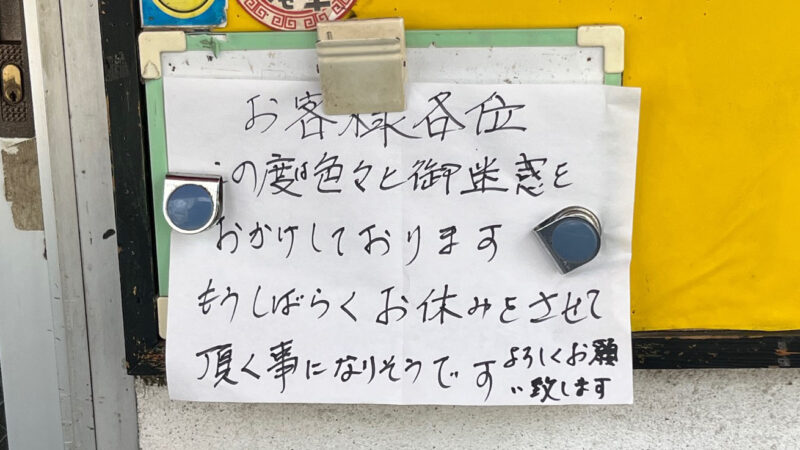 お客様各位
この度は色々と御迷惑を
おかけしております
もうしばらくお休みをさせて
頂く事になりそうです
よろしくお願
い致します